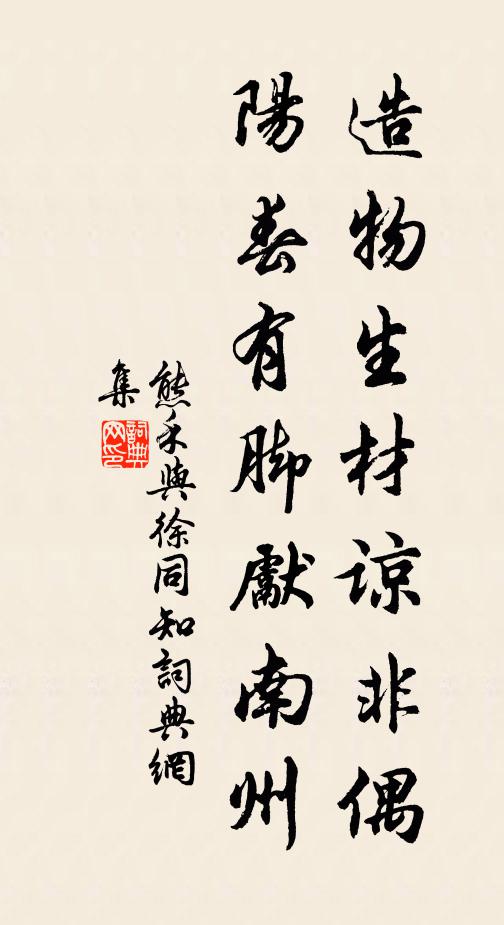 造物生材諒非偶
陽春有脚獻南州
熊禾與徐同知詞典網
集
詞典網印